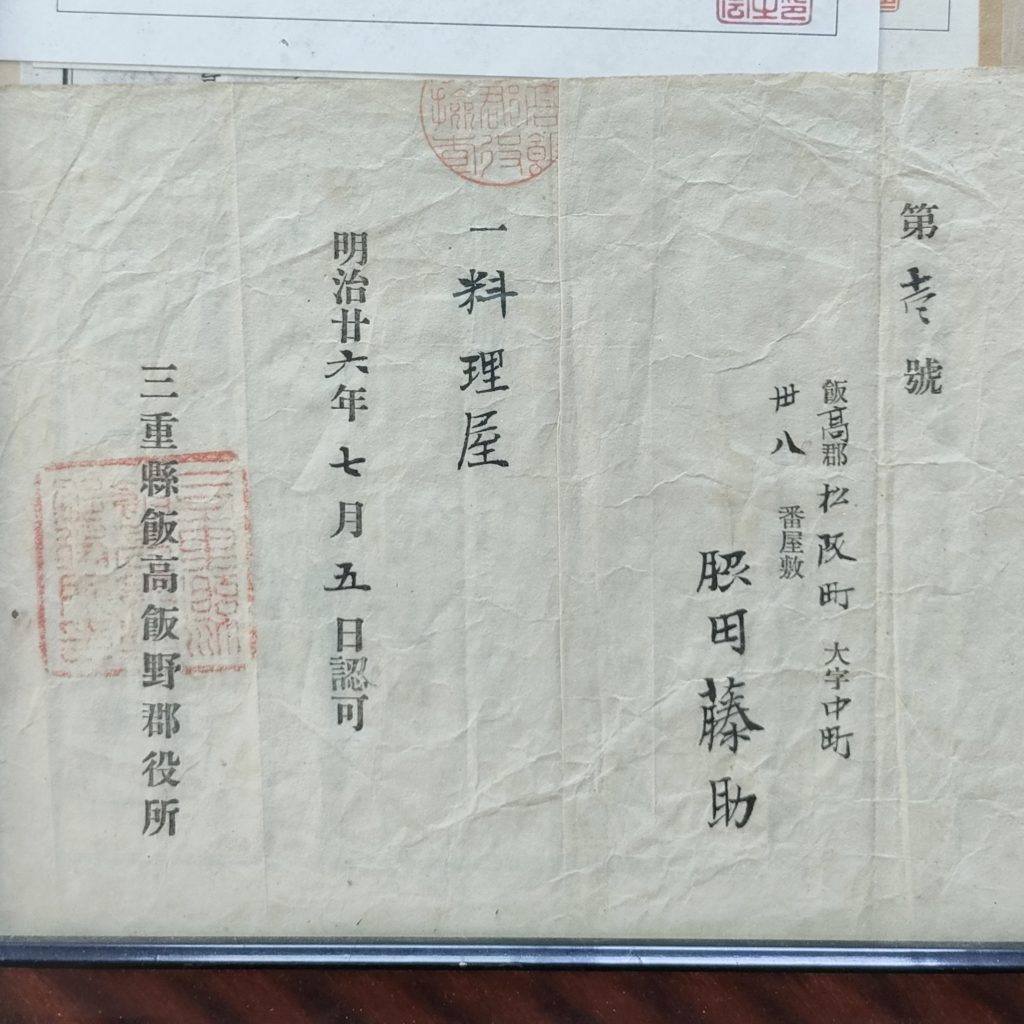 第壱號
飯高郡松阪町大字中町
丗八番屋敷
田藤助
一料理屋
明治廿六年七月五日認可
三重縣飯高飯野郡役所